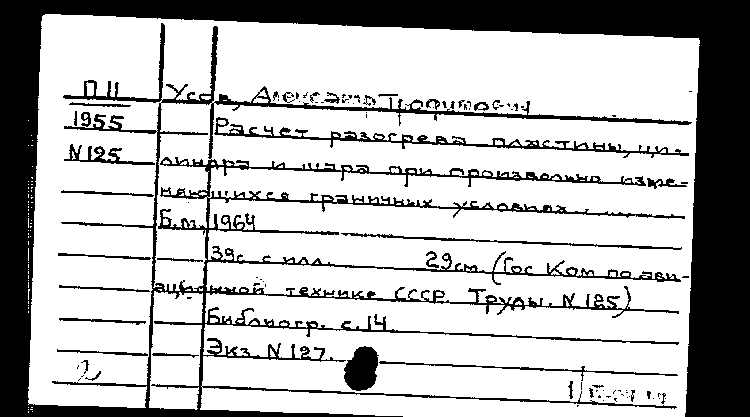 П 11 Усов, Александр Трофимович
1955 Расчет разогрева пластины, ци-
N 125 линдра и шара при произвольно изме-
няющихся граничных условиях
Б.м., 1964
39с с илл. 29см. (Гос Ком по ави-
ационной технике СССР. Труды. N 125)
Библиогр. с. 14.
Экз. N 127.
2